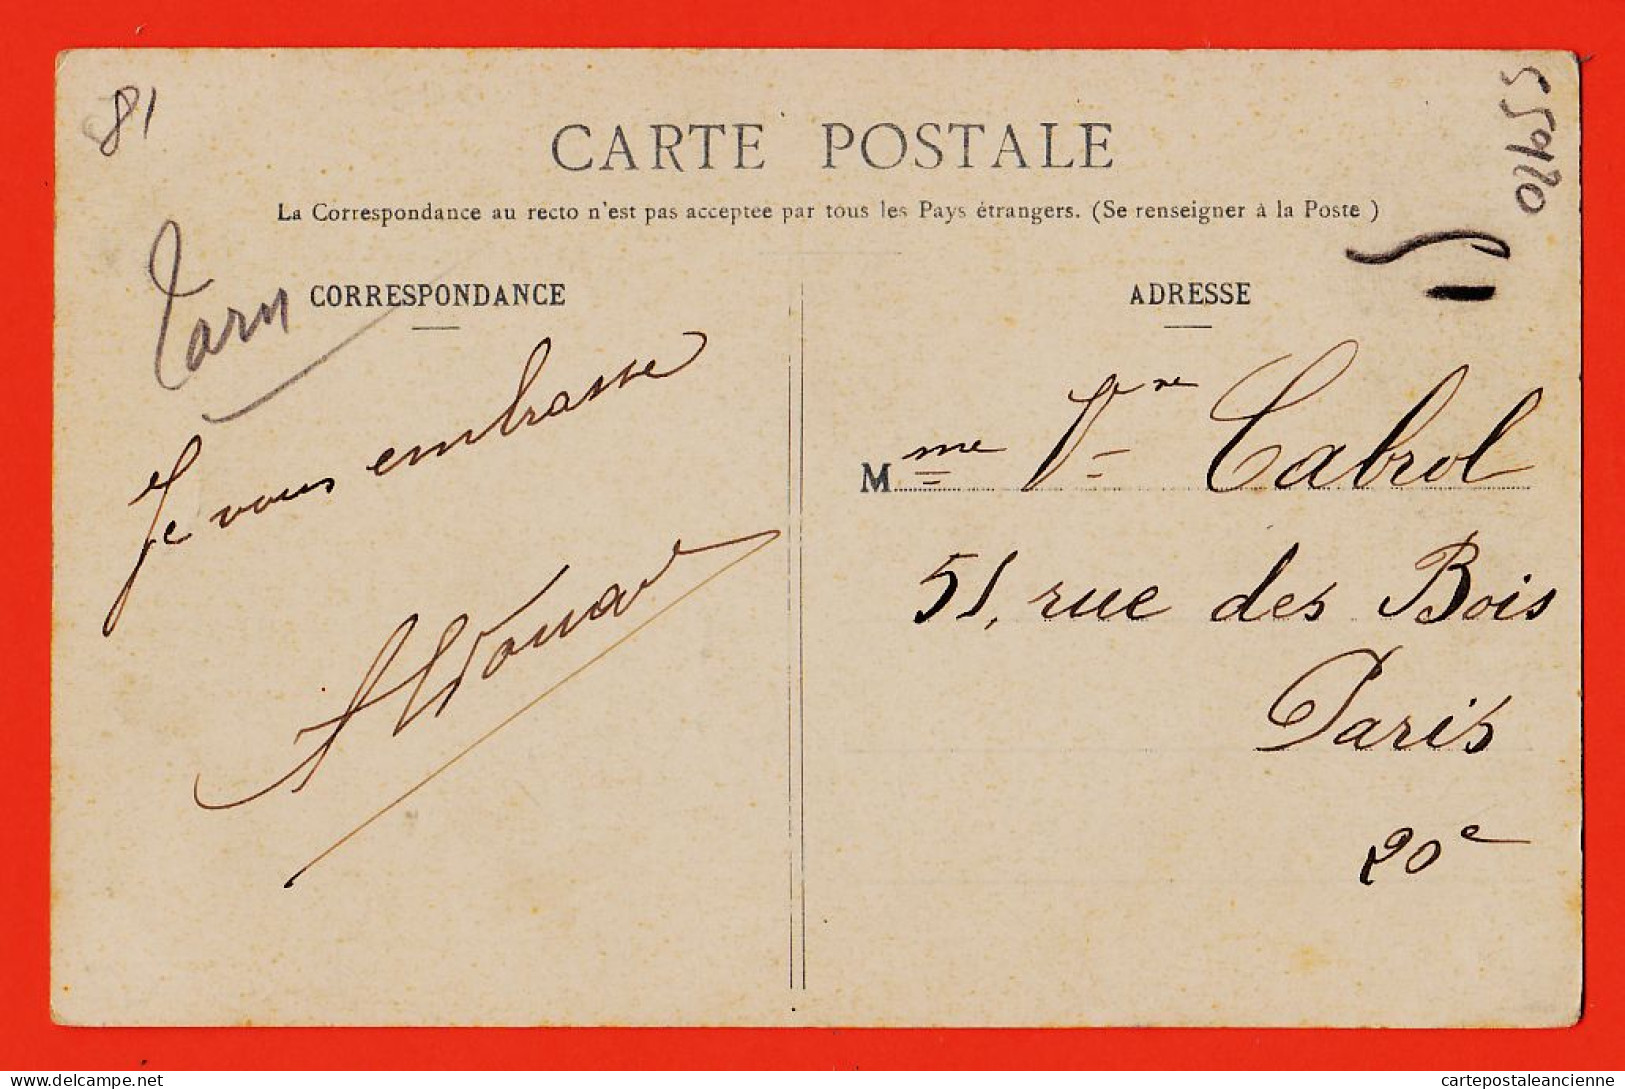 81
55920
CARTE POSTALE
La Correspondance au recto n'est pas acceptée par tous les Pays étrangers. (Se renseigner à la Poste )
Tarn
CORRESPONDANCE
ADRESSE
Je vous embrasse
Mme Vve Cabrol
51, rue des Bois
Paris
20e
delcampe.net
cartepostaleancienne